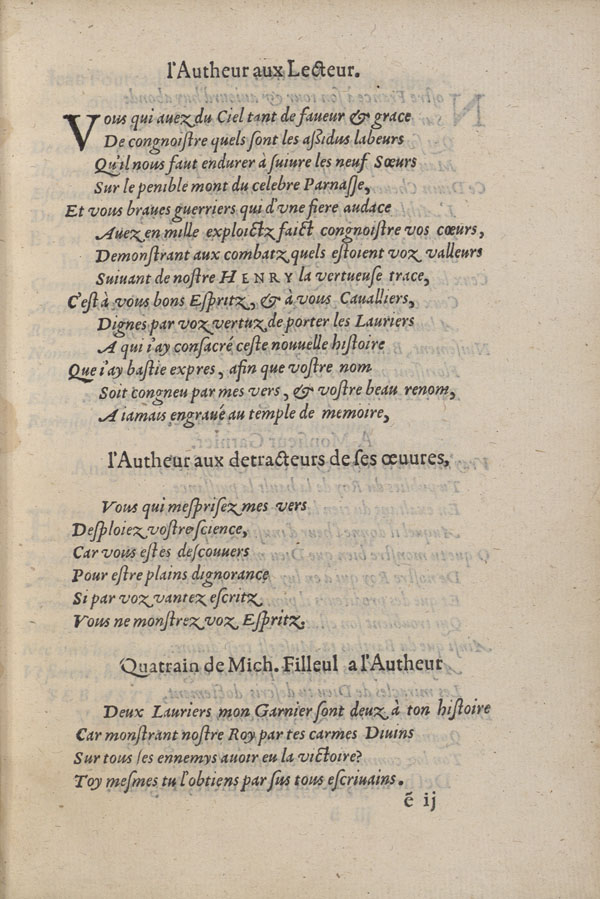 l'Autheur aux Lecteur.
Vous qui auez du Ciel tant de faueur & grace
De congnoistre quels sont les aßidus labeurs
Qu'il nous faut endurer à suiure les neuf Sœurs
Sur le penible mont du celebre Parnasse,
Et vous braues guerriers qui d'vne fiere audace
Auez en mille exploictz faict congnoistre vos cœurs,
Demonstrant aux combatz quels estoient voz valleurs
Suiuant de nostre HENRY la vertueuse trace,
C'est à vous bons Espritz, & à vous Caualliers,
Dignes par voz vertuz de porter les Lauriers
A qui i'ay consacré ceste nouuelle histoire
Que i'ay bastie expres, afin que vostre nom
Soit congneu par mes vers, & vostre beau renom,
A iamais engraué au temple de memoire,
l'Autheur aux detracteurs de ses œuures,
Vous qui mesprisez mes vers
Desploiez vostre science,
Car vous estes descouuers
Pour estre plains dignorance
Si par voz vantez escritz
Vous ne monstrez voz Espritz.
Quatrain de Mich. Filleul a l'Autheur
Deux Lauriers mon Garnier sont deuz à ton histoire
Car monstrant nostre Roy par tes carmes Diuins
Sur tous ses ennemys auoir eu la victoire?
Toy mesmes tu l'obtiens par sus tous escriuains.
ẽ ij